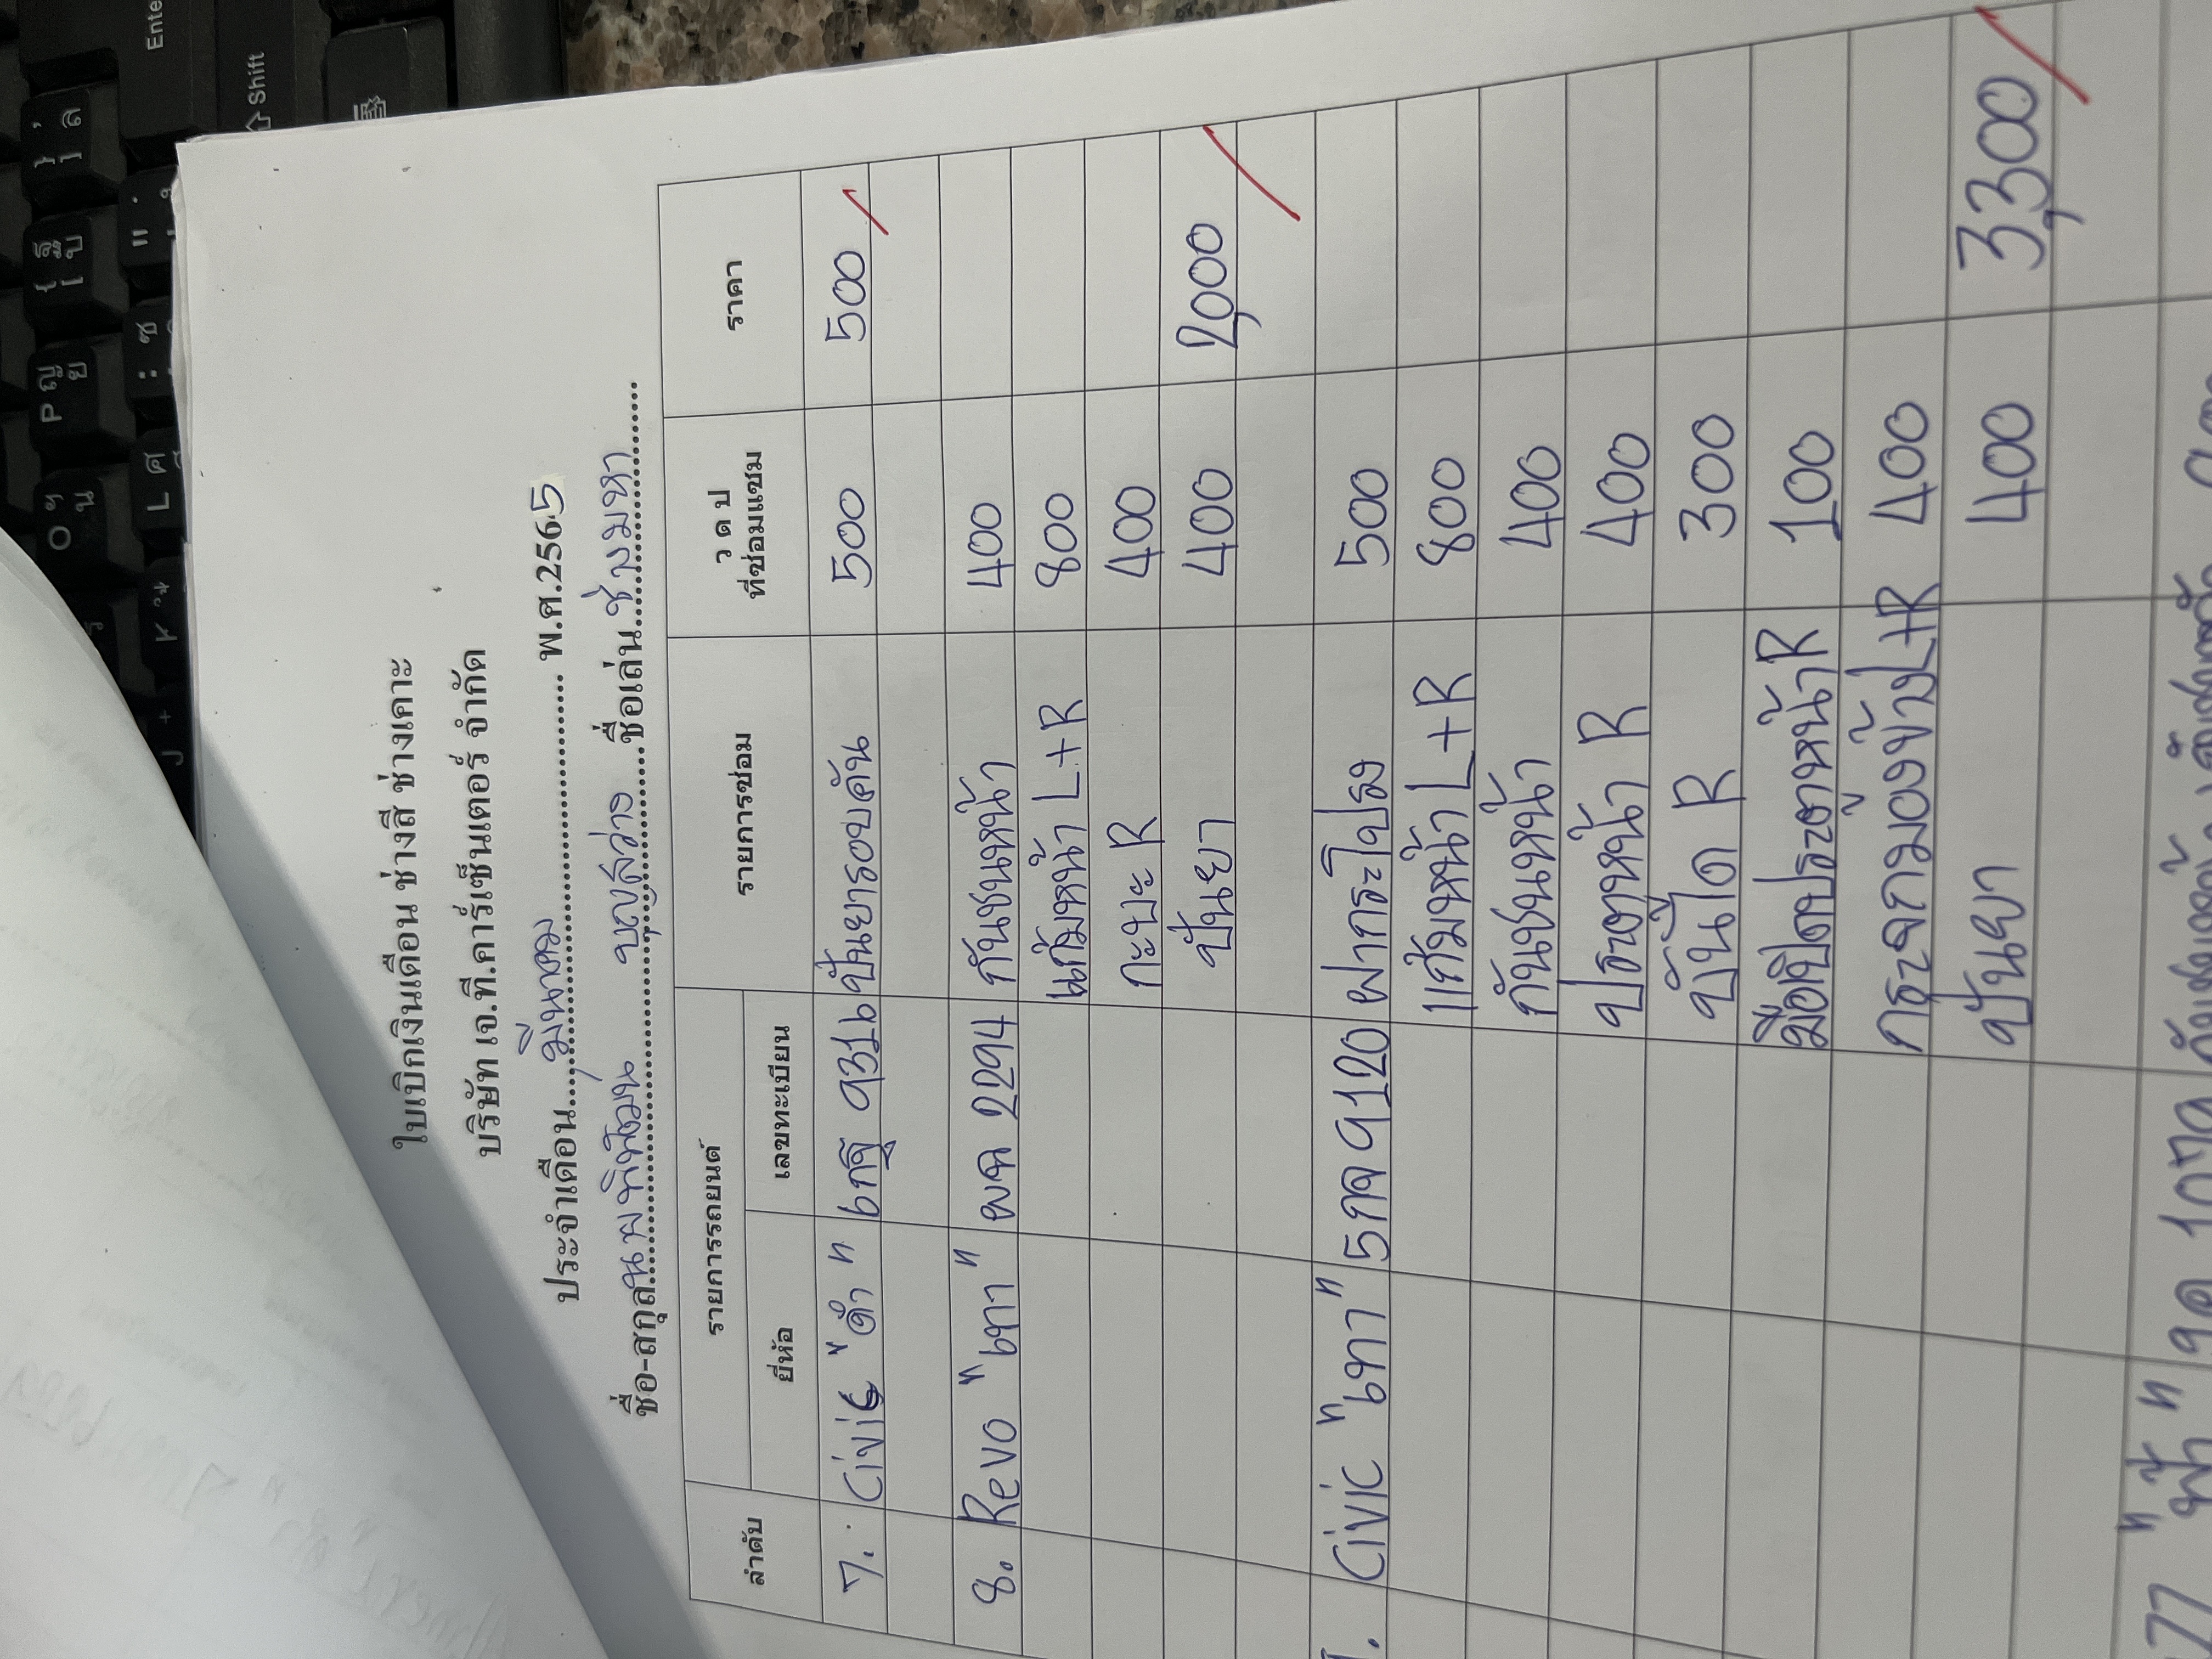 ใบเบิกเงินเดือน ช่างสี ช่างเคาะ
บริษัท เจ.ที.คาร์เซ็นเตอร์ จำกัด
ประจำเดือน...มีนาคม... พ.ศ.2565
ชื่อ-สกุล... บุญสว่าง ...ชื่อเล่น..ช่างมหา...
ลำดับ รายการรถยนต์ รายการซ่อม ว ด ป ที่ซ่อมแซม ราคา
ยี่ห้อ เลขทะเบียน
7. Civic "ดำ" 6กฐ 9316 ปั่นยารอบคัน 500 500
8. Revo "เทา" ผฉ 2294 กันชนหน้า 400
แก้มหน้า L+R 800
กะบะ R 400
ปั่นยา 400 2,000
Civic "เทา" 5กจ 9120 ฝากระโปรง 500
แก้มหน้า L+R 800
กันชนหน้า 400
ประตูหน้า R 400
บันได R 300
มือเปิดประตูหน้า R 100
กระจกมองข้าง L+R 400
ปั่นยา 400 3,300
"ฟ้า"
Enter
Shift
P ญ ย
O ฯ น
L ศ ส
: ซ
{ [ ฐ บ
} ] , ล
" .